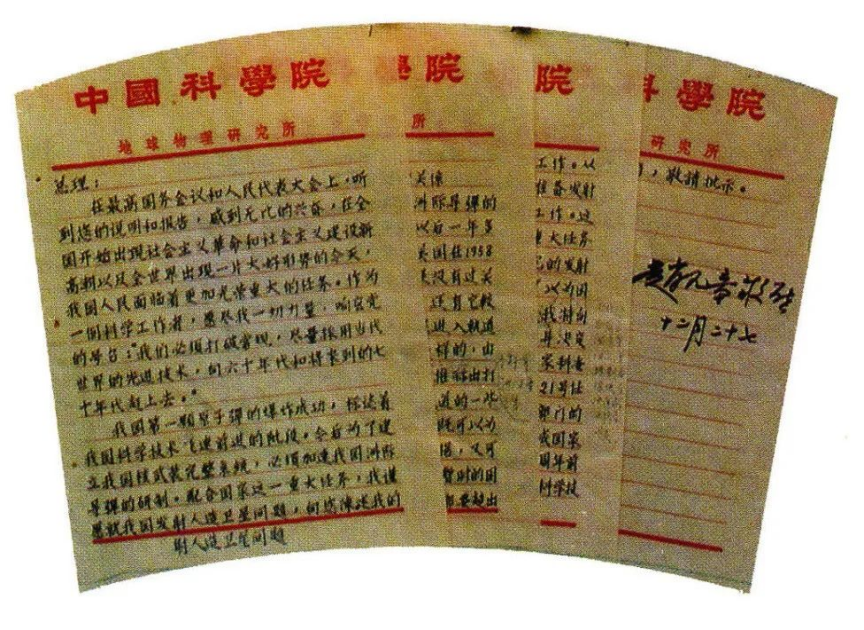 中國科學院
地球物理研究所
总理：
在最高国务会议和人民代表大会上，听
到您的说明和报告，感到无比的兴奋，在全
国开始出现社会主义革命和社会主义建设新
高潮以及全世界出现一片大好形势的今天，
我国人民面临着更加光荣重大的任务。作为
一个科学工作者，愿尽我一切力量，响应党
的号召：“我们必须打破常规，尽量採用当代
世界的先进技术，向六十年代和将来到的七
十年代赶上去。”
我国第一颗原子弹的爆炸成功，标志着
我国科学技术飞速前进的阶段。今后为了建
立我国核武装完整系统，必须加速我国洲际
导弹的研制。配合国家这一重大任务，我谨
想就我国发射人造卫星问题，向您陈述我的
射人造卫星问题
學院
所
关係
洲际导弹的
以后一年多
美国在1958
没有过关
还有它较
进入轨道
样的，由
推器出打
道的一些
既可以为
又可
暂时的困
要超出
院
工作。从
准备发射
工作。这
重大任务
的发射
以为因
我特向
并决定
家科委
21号任
部门的
我国家
周年前
科学技
科學院
研究所
，敬请批示。
赵九章敬啟
十二月二十七